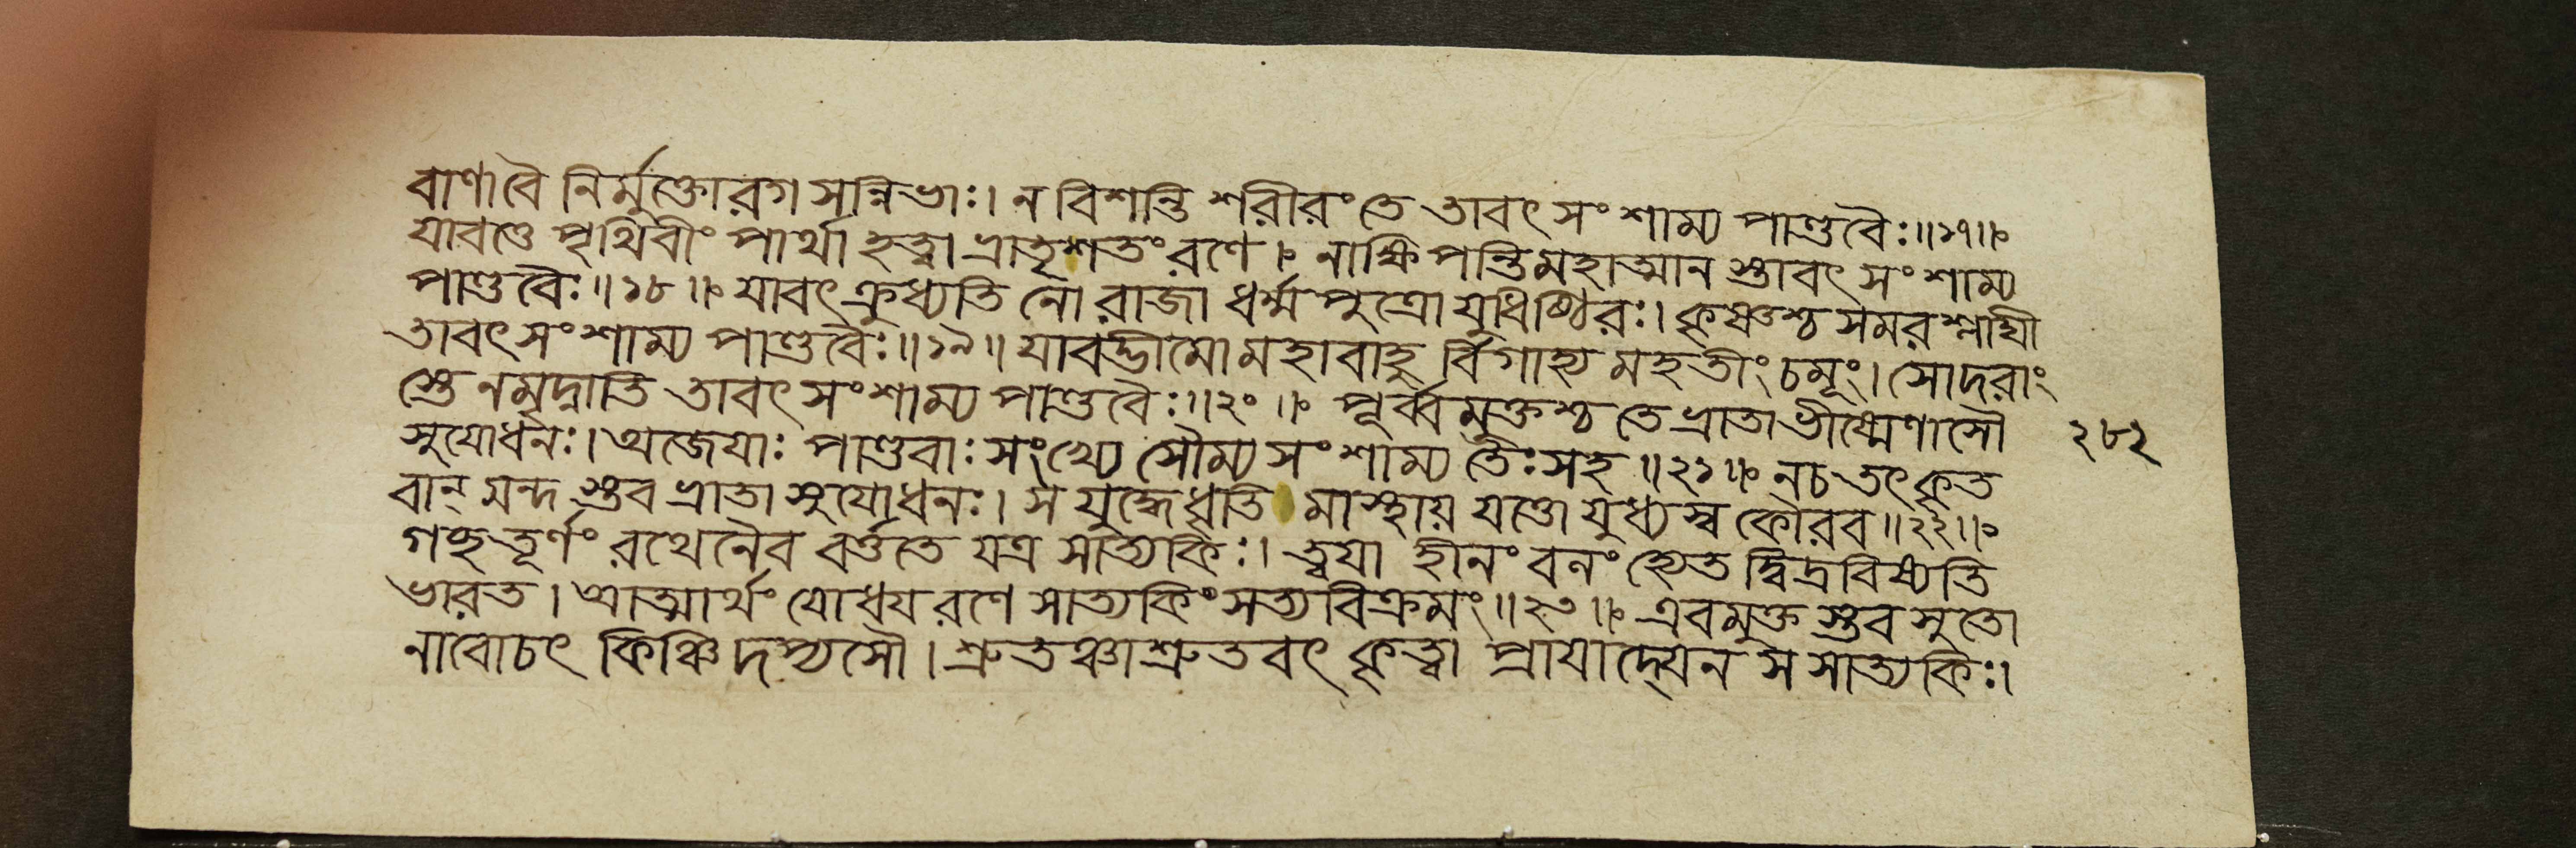 বাণাবৈ নির্মুক্তোরগ সন্নিভাঃ। ন বিশন্তি শরীরং তে তাবৎ সং শাম্য পাণ্ডবৈঃ॥১৭॥
যাবত্তে পৃথিবীং পার্থা হত্বা ভ্রাতৃশতং রণে। নাক্ষিপন্তি মহাত্মান স্তাবৎ সং শাম্য
পাণ্ডবৈঃ॥১৮॥ যাবৎ ক্রুধ্যতি নো রাজা ধর্ম্ম পুত্রো যুধিষ্ঠিরঃ। কৃষ্ণশ্চ সমর শ্লাঘী
তাবৎ সং শাম্য পাণ্ডবৈঃ॥১৯॥ যাবদ্ভীমো মহাবাহু র্বিগাহ্য মহতীং চমূং। সোদরাং
স্তে নমৃদ্নাতি তাবৎ সংশাম্য পাণ্ডবৈঃ॥২০॥ পূর্ব্ব মুক্তশ্চ তে ভ্রাতা ভীষ্মেণাসৌ
সুযোধনঃ। অজেযাঃ পাণ্ডবাঃ সংখ্যে সৌম্য সং শাম্য তৈঃ সহ॥২১॥ নচ তৎ কৃত
বান্ মন্দ স্তব ভ্রাতা সুযোধনঃ। স যুদ্ধে ধৃতি মাস্থায় যত্তো যুধ্যস্ব কৌরব॥২২॥
গচ্ছ তূর্ণং রথেনৈব বর্ত্ততে যত্র সাত্যকিঃ। ত্বযা হীনং বনং হ্যেত দ্বিদ্রবিষ্যতি
ভারত। আত্মার্থং যোধয রণে সাত্যকিং সত্য বিক্রমং॥২৩॥ এবমুক্ত স্তব সুতো
নাবোচৎ কিঞ্চি দপ্যসৌ। শ্রুতঞ্চাশ্রুতবৎ কৃত্বা প্রাযাদ্যেন স সাত্যকিঃ।
২৮২